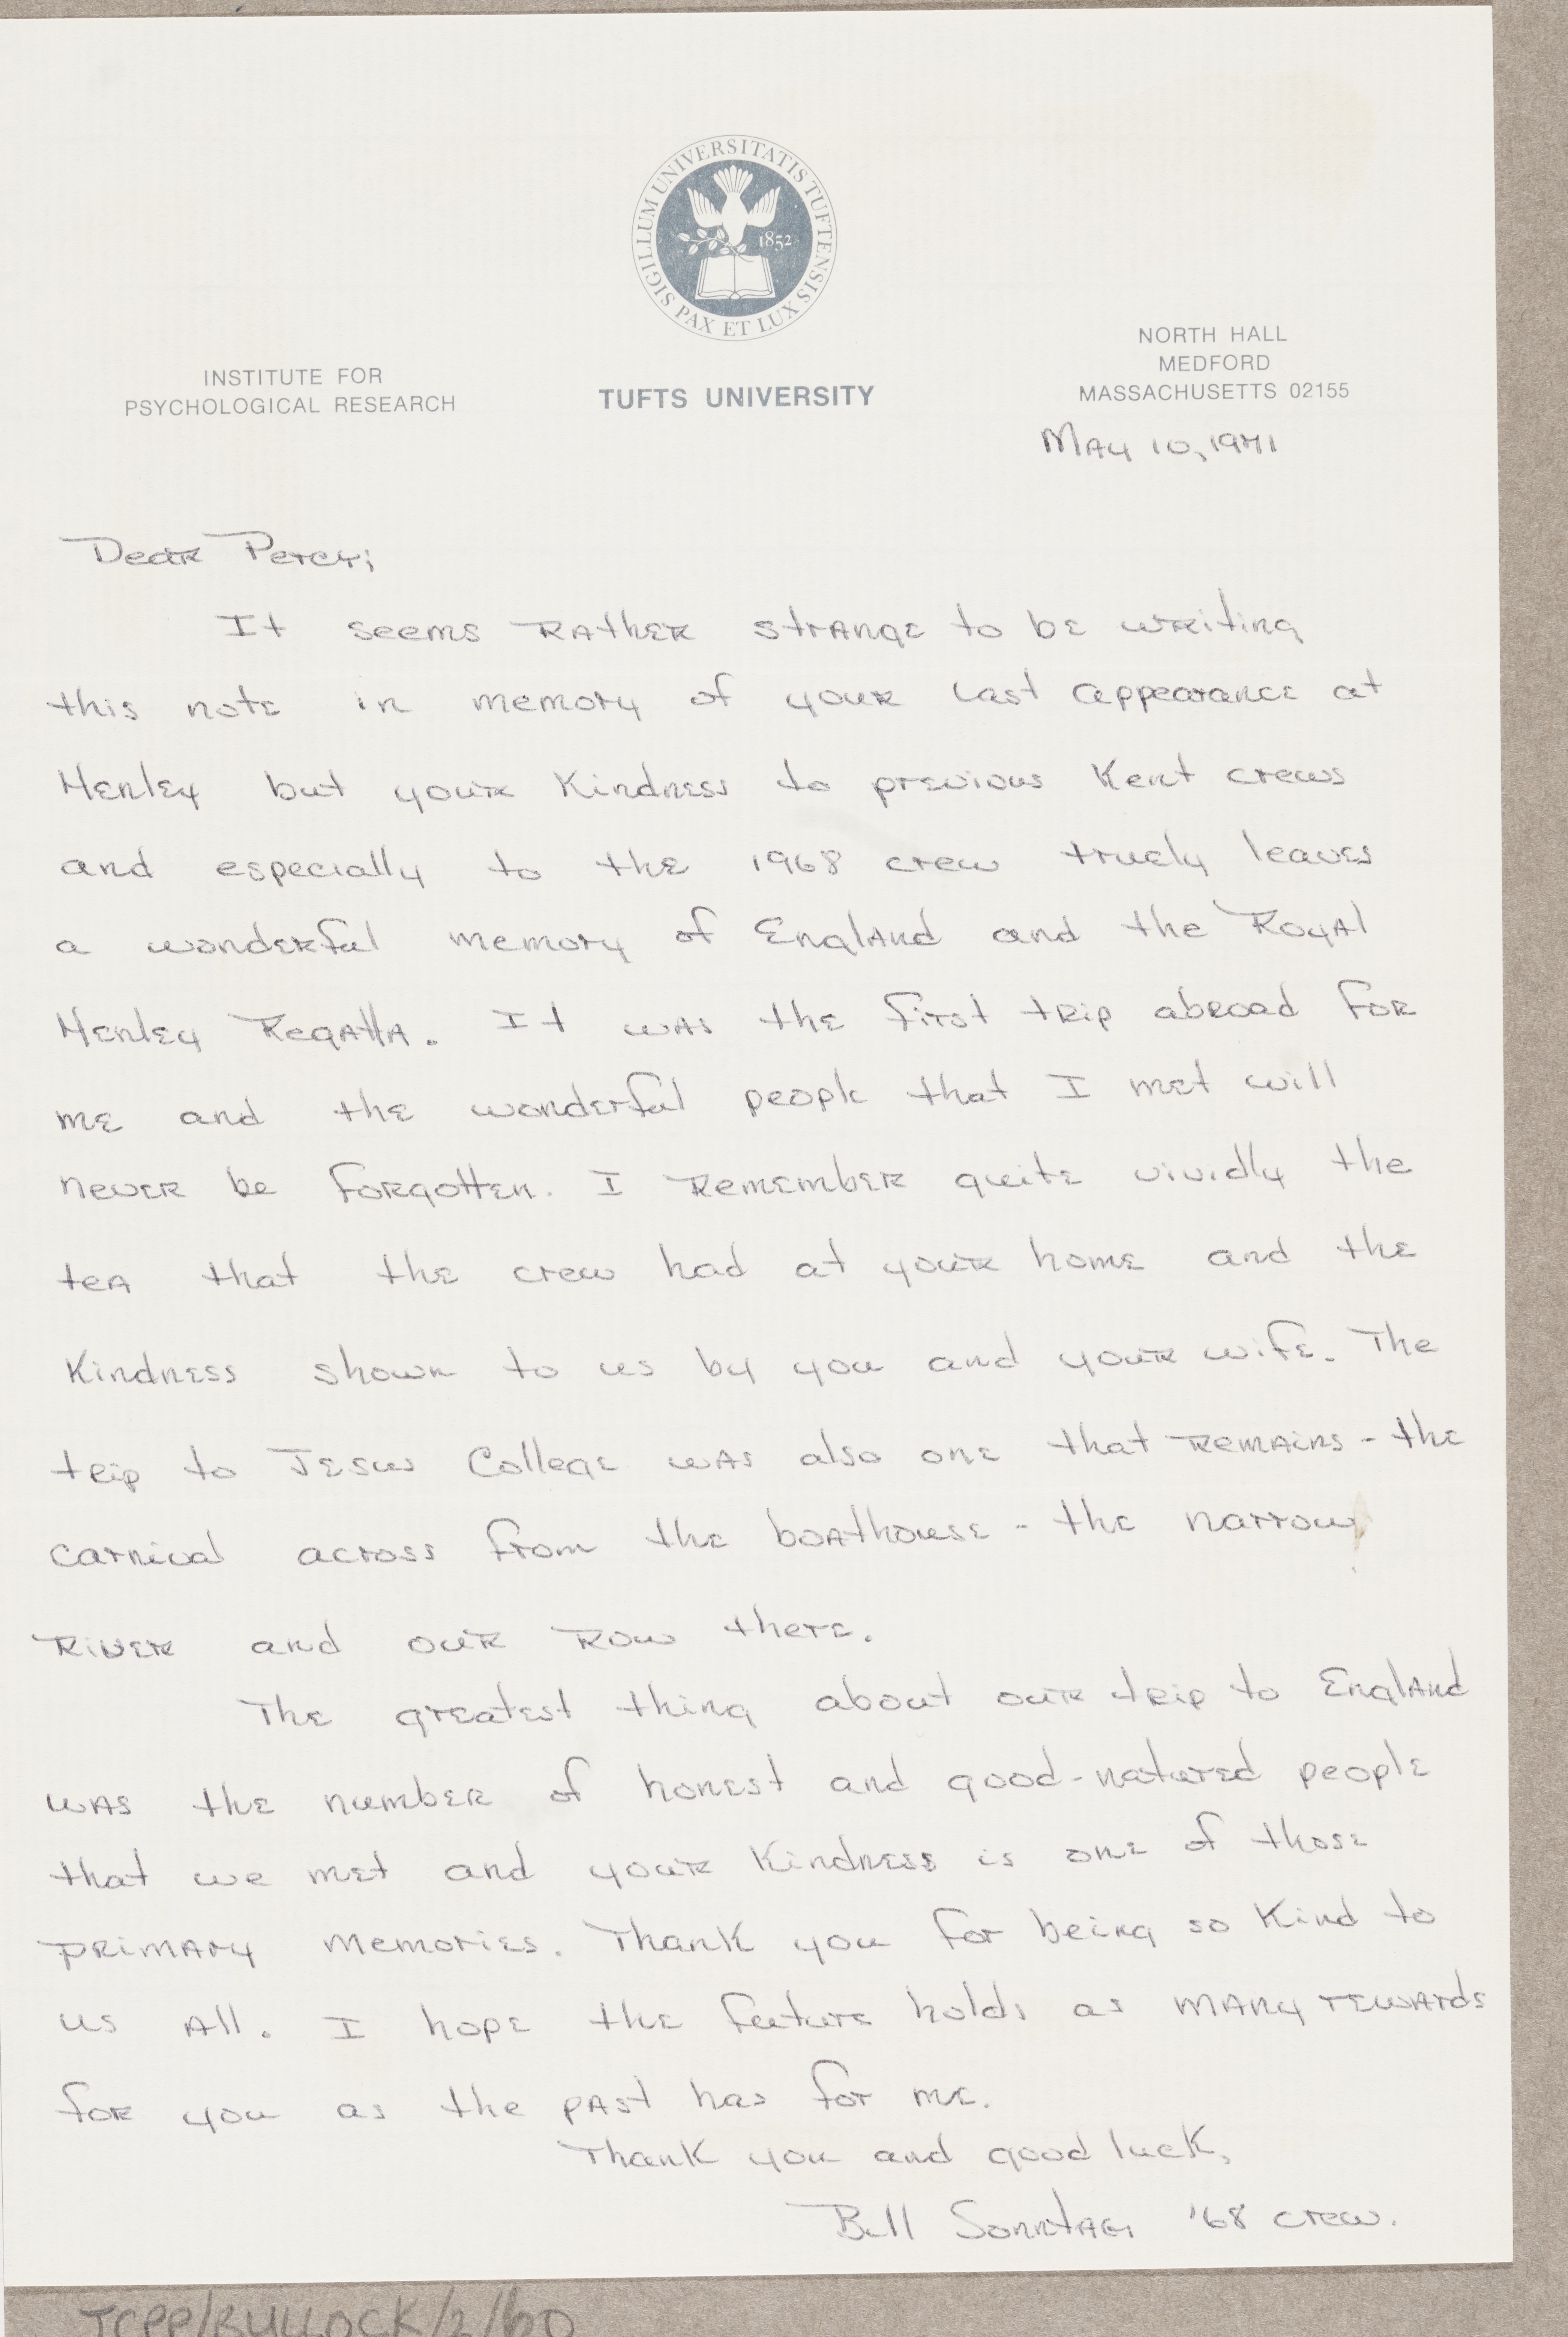 SIGILLUM UNIVERSITATIS TUFTENSIS
PAX ET LUX
1852
INSTITUTE FOR
PSYCHOLOGICAL RESEARCH
TUFTS UNIVERSITY
NORTH HALL
MEDFORD
MASSACHUSETTS 02155
May 10, 1971
Dear Percy;
It seems rather strange to be writing
this note in memory of your last appearance at
Henley but your kindness to previous Kent crews
and especially to the 1968 crew truely leaves
a wonderful memory of England and the Royal
Henley Regatta. It was the first trip abroad for
me and the wonderful people that I met will
never be forgotten. I remember quite vividly the
tea that the crew had at your home and the
kindness shown to us by you and your wife. The
trip to Jesus College was also one that remains - the
carnival across from the boathouse - the narrow
river and our row there.
The greatest thing about our trip to England
was the number of honest and good-natured people
that we met and your kindness is one of those
primary memories. Thank you for being so kind to
us all. I hope the future holds as many rewards
for you as the past has for me.
Thank you and good luck,
Bill Sonntag '68 crew.
JCPP/BULLOCK/2/60